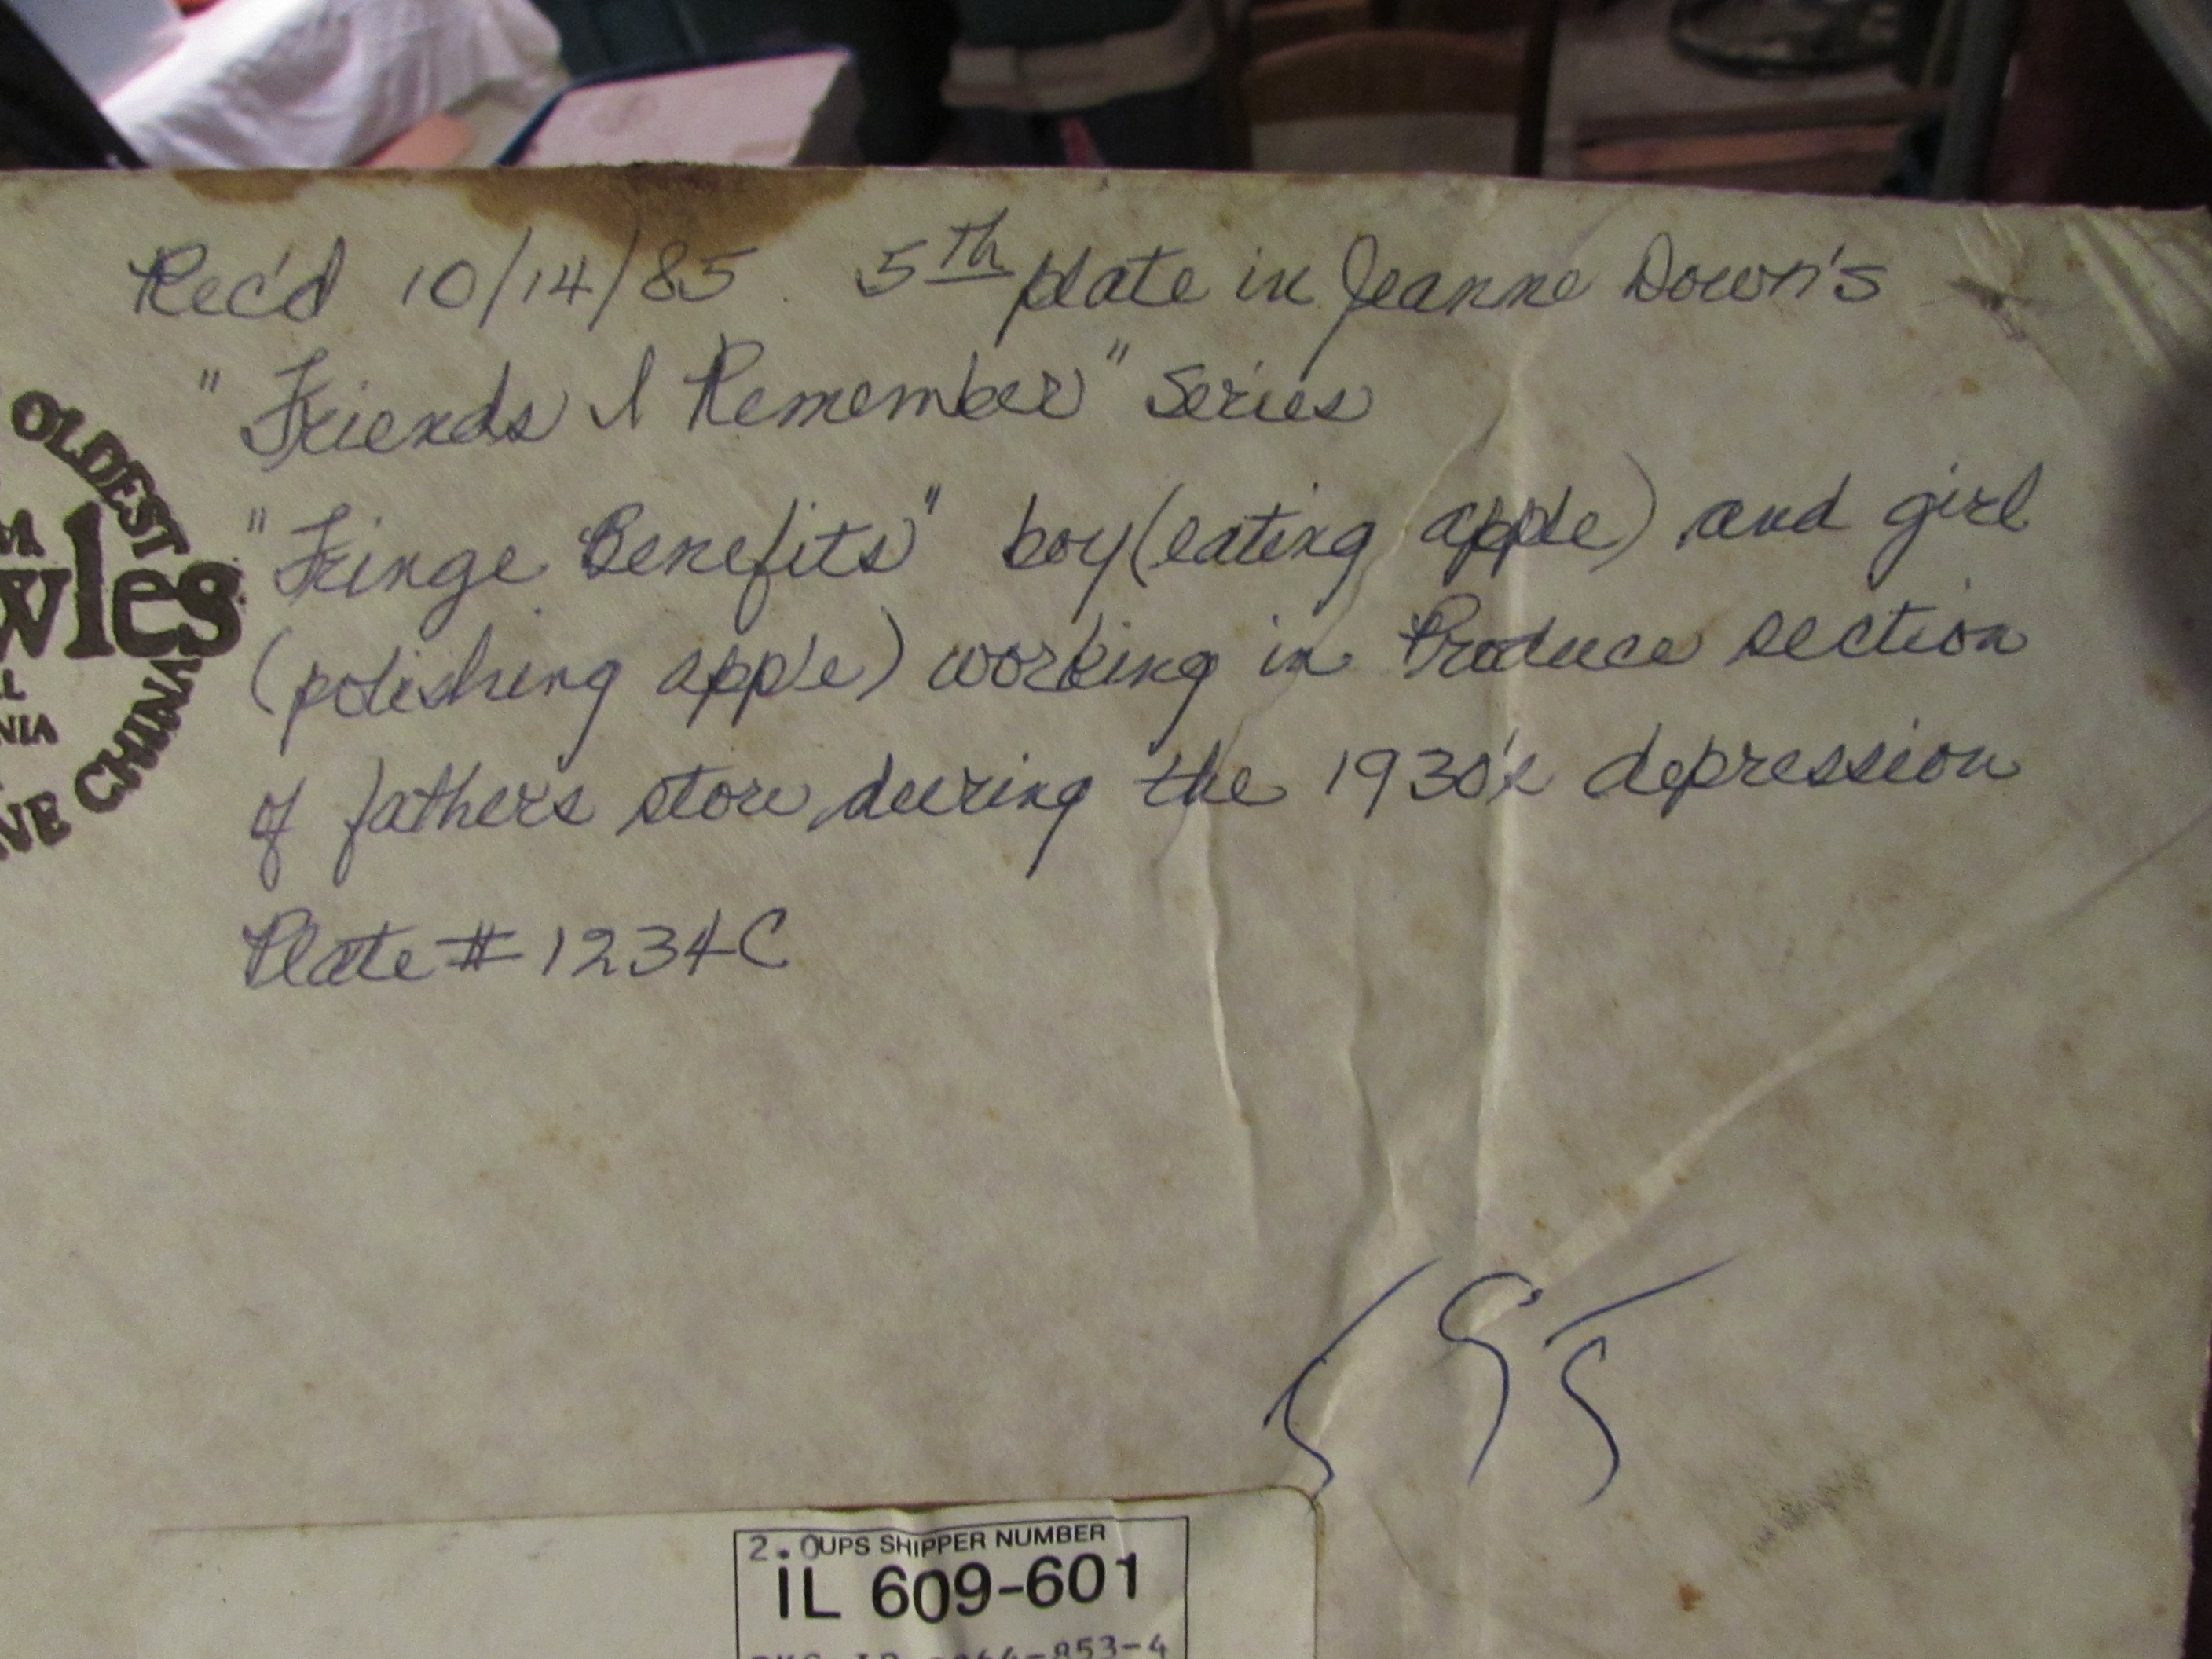 Rec'd 10/14/85. 5th plate in Jeanne Down's
"Friends I Remember" Series
"Fringe Benefits" boy (eating apple) and girl
(polishing apple) working in Produce section
of fathers store during the 1930's depression
Plate # 1234C
OLDEST
wles
NIA
CHINA
595
2.0 UPS SHIPPER NUMBER
IL 609-601
-853-4